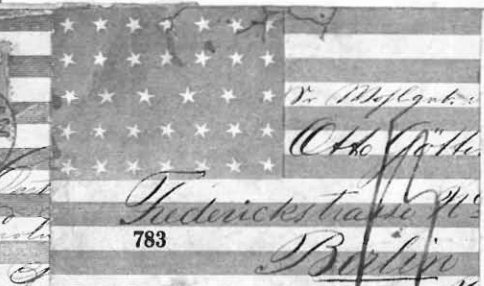 Sr Wohlgeb.
Otto Götti
Frederickstrasse No
783
Berlin